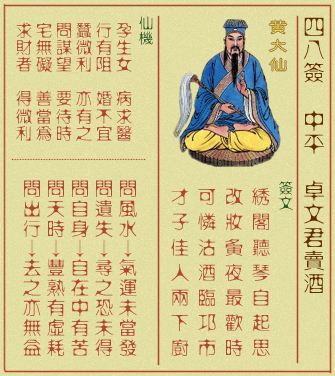 四八簽 中平 卓文君賣酒
黃大仙
簽文
綉閣聽琴自起思
改妝夤夜最歡時
可憐沽酒臨邛市
才子佳人兩下廚
仙機
孕生女 病求醫
行有阻 婚不宜
蠶微利 亦有之
問謀望 要待時
宅無礙 善當為
求財者 得微利
問風水↓氣運未當發
問遺失↓尋之恐未得
問自身↓自在中有苦
問天時↓豐熟有虛耗
問出行↓去之亦無益